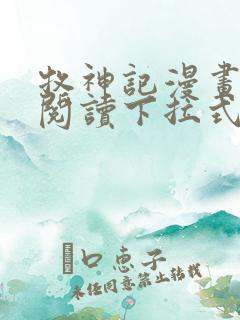 牧神記漫畫
閱讀下拉式
口恵子
未经同意禁止转载